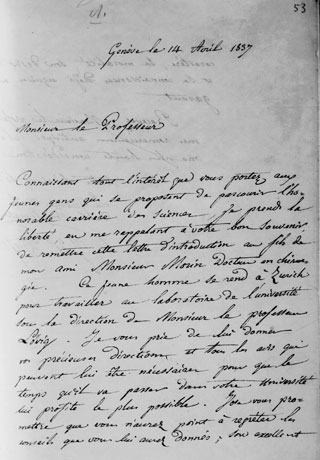 A.
53
Genève le 14 Avril 1837
Monsieur le Professeur
Connaissant tout l'intérêt que vous portez aux
jeunes gens qui se proposent de parcourir l'ho
norable carrière des sciences Je prends la
liberté en me rappelant à votre bon souvenir
de remettre cette lettre d'introduction au fils de
mon ami Monsieur Morin Docteur en chirur
gie. Ce jeune homme se rend à Zurich
pour travailler au laboratoire de l'université
sous la direction de Monsieur le professeur
Löwig. Je vous prie de lui donner
vos précieuses directions et tous les avis qui
peuvent lui être nécessaires pour que le
temps qu'il va passer dans votre Université
lui profite le plus possible. J'ose vous pro
mettre que vous n'aurez point à regretter les
conseils que vous lui aurez donnés; son excellent